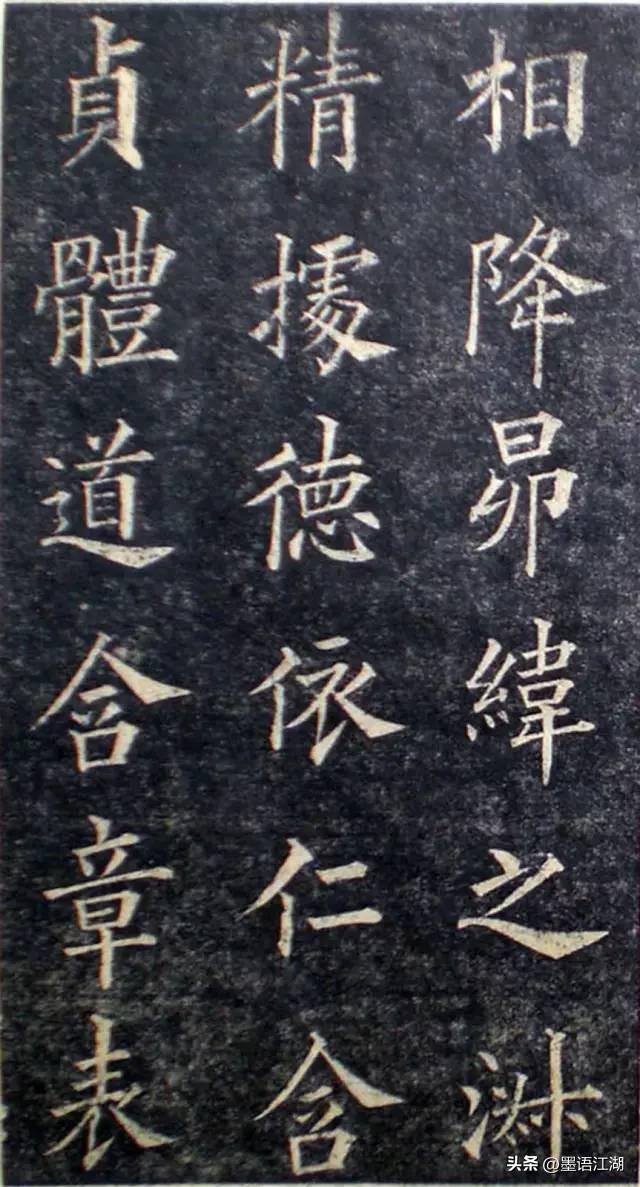 相降昴緯之淑
精據徳依仁含
貞體道含章表
头条 @墨语江湖